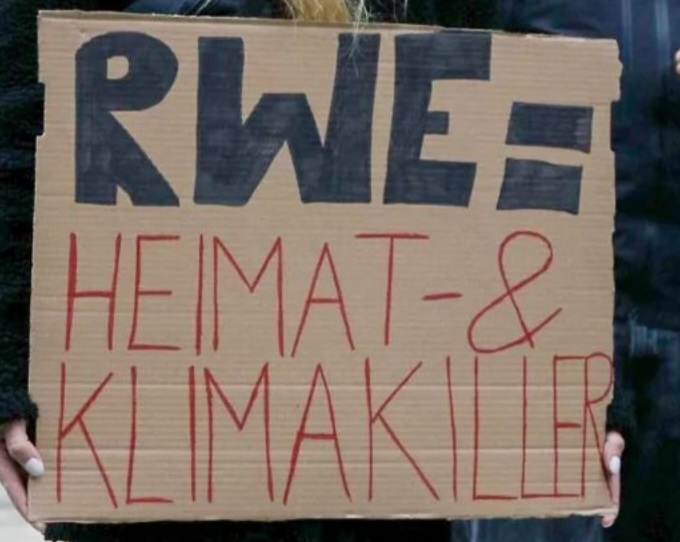 RWE=
HEIMAT-&
KLIMAKILLER